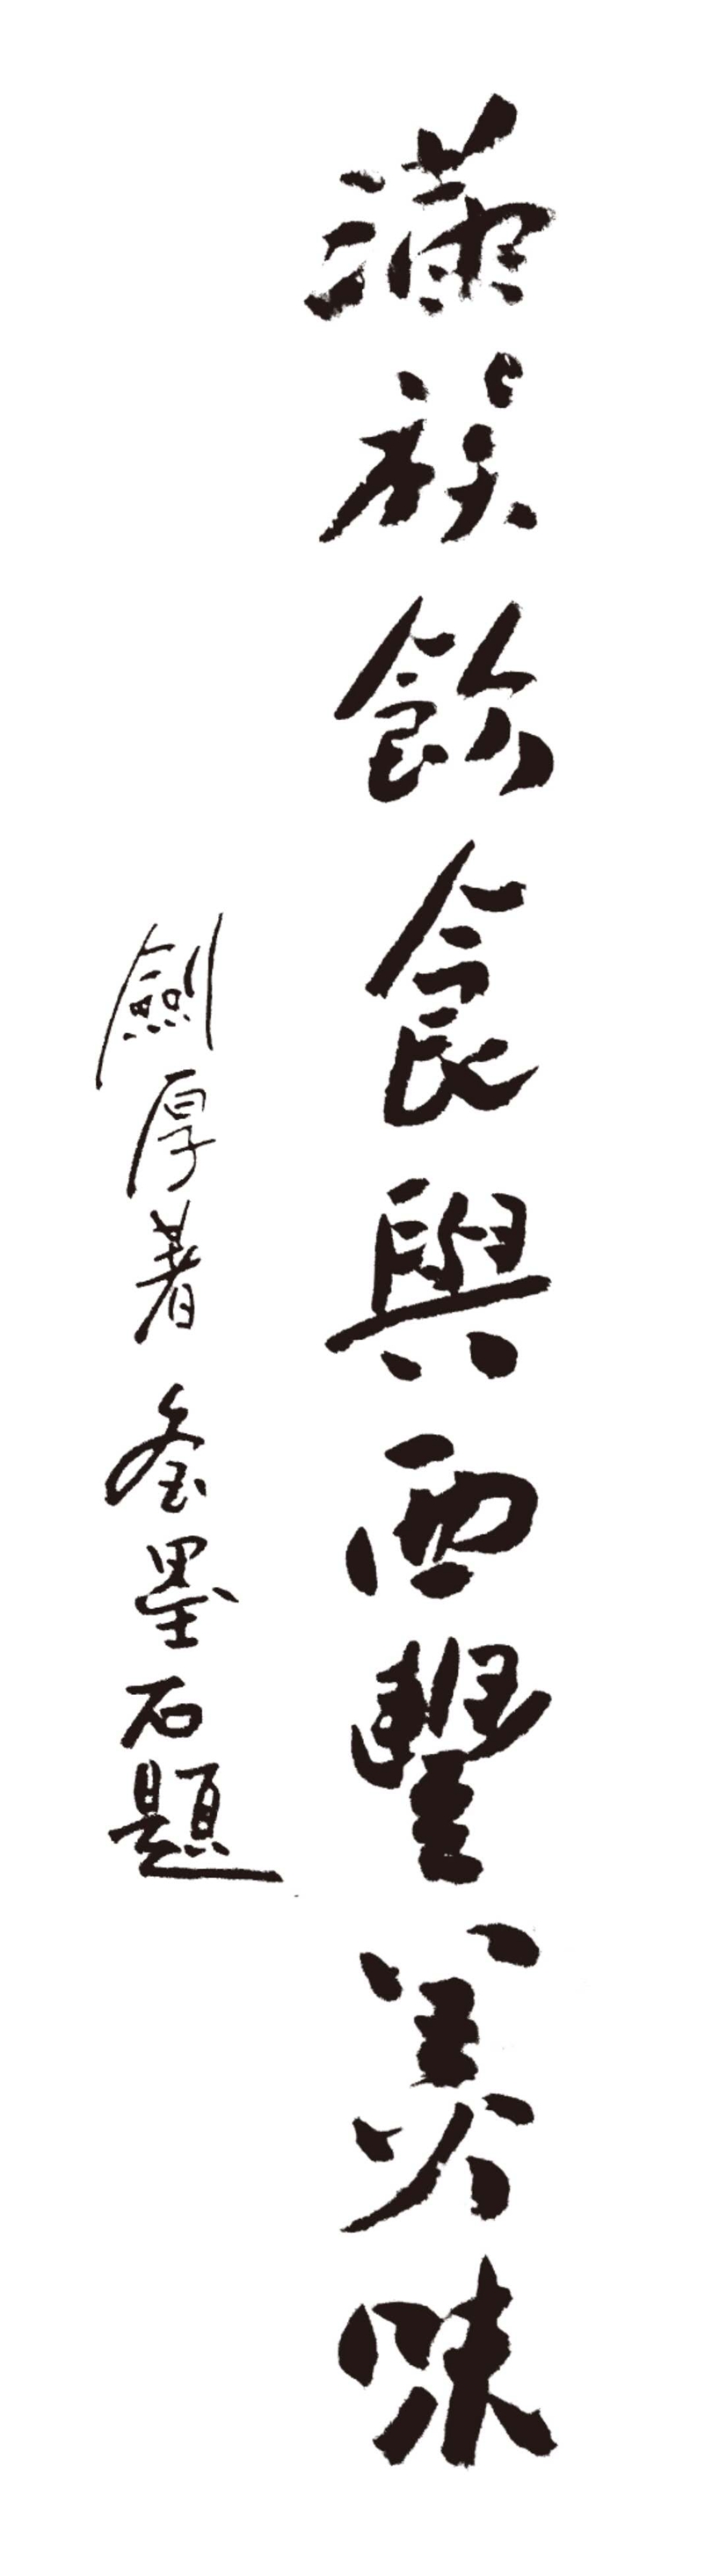 滿族飲食與西豐美味
劍厚著 金墨石題